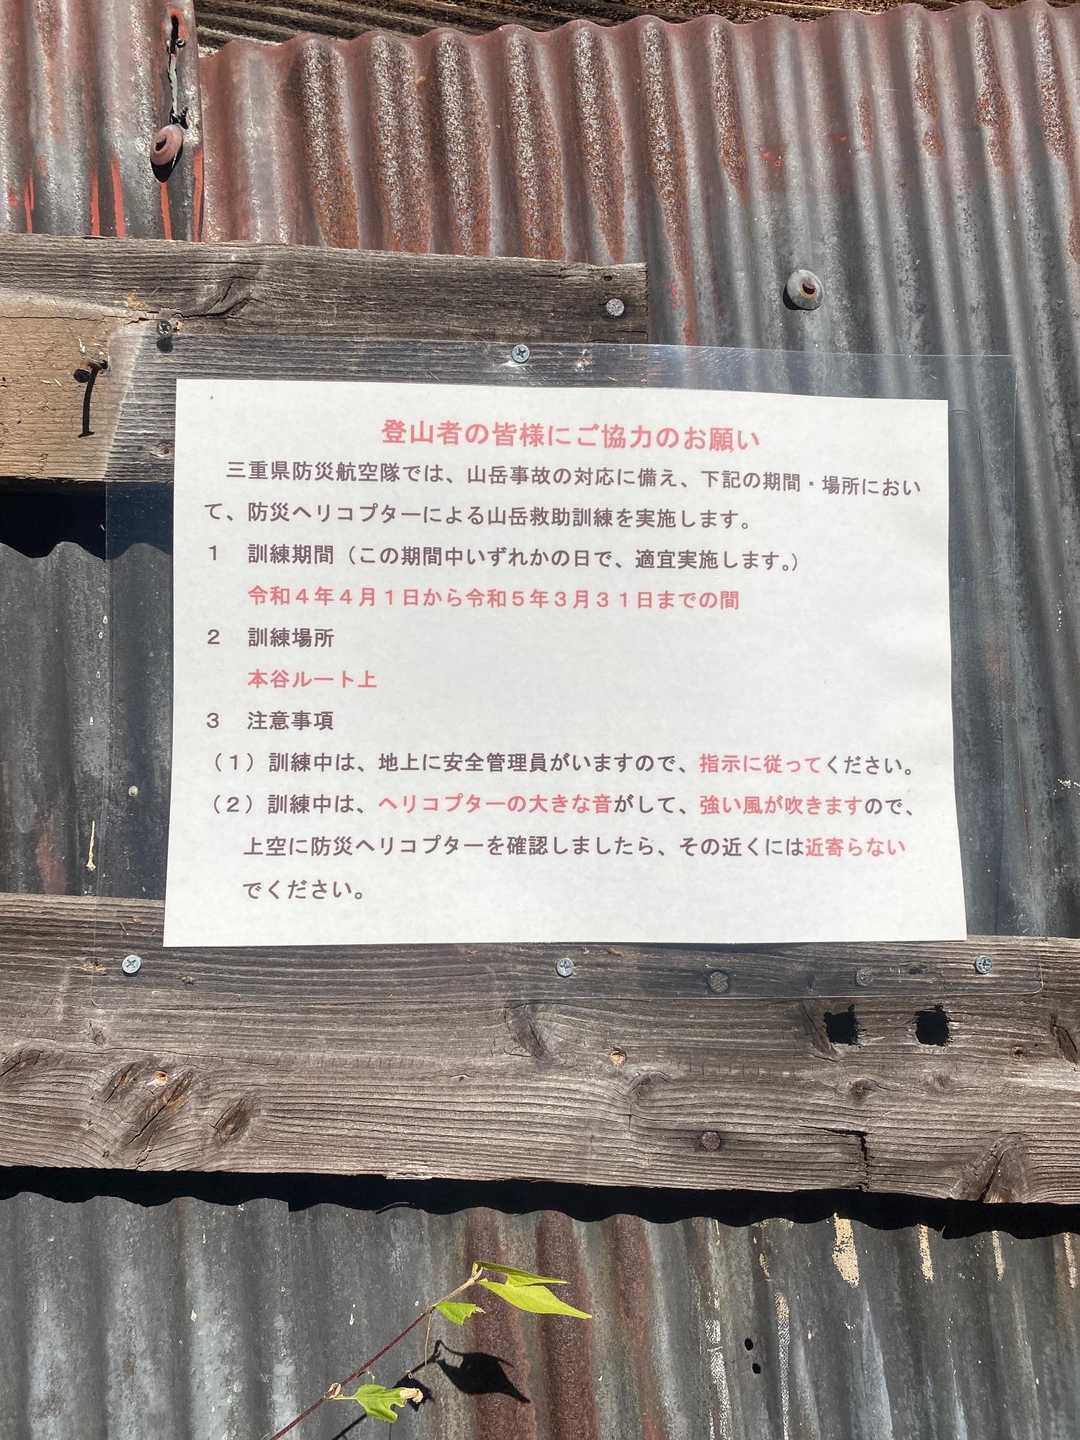 登山者の皆様にご協力のお願い
三重県防災航空隊では、山岳事故の対応に備え、下記の期間・場所におい
て、防災ヘリコプターによる山岳救助訓練を実施します。
１　訓練期間（この期間中いずれかの日で、適宜実施します。）
令和４年４月１日から令和５年３月３１日までの間
２　訓練場所
本谷ルート上
３　注意事項
（１）訓練中は、地上に安全管理員がいますので、指示に従ってください。
（２）訓練中は、ヘリコプターの大きな音がして、強い風が吹きますので、
上空に防災ヘリコプターを確認しましたら、その近くには近寄らない
でください。